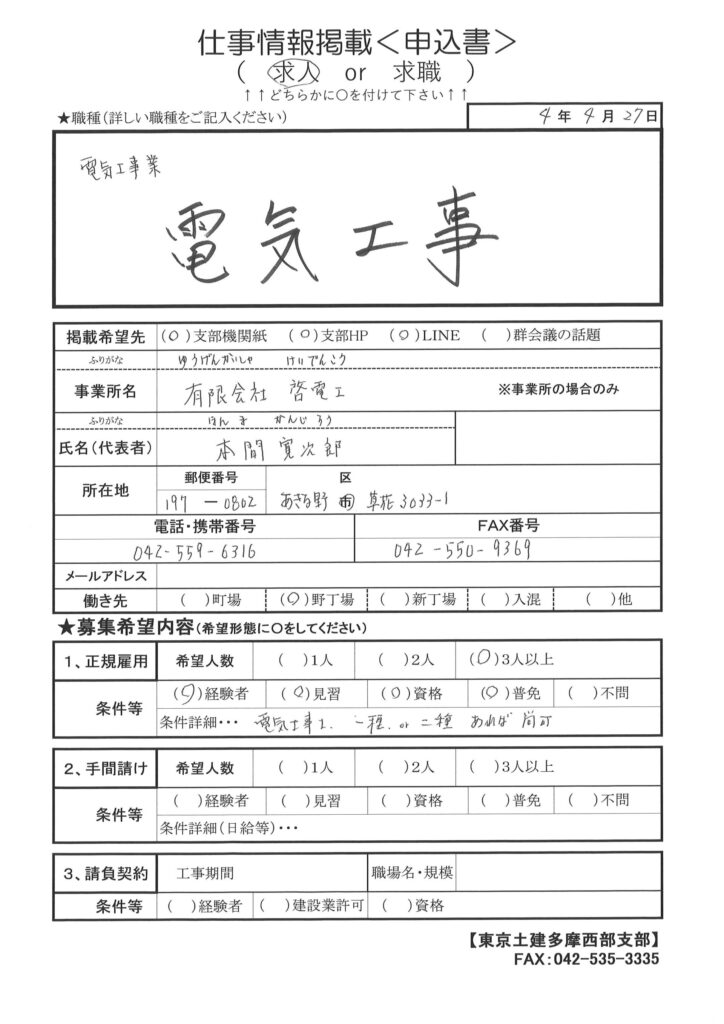 仕事情報掲載＜申込書＞
( 求人 or 求職 )
↑↑どちらかに○を付けて下さい↑↑
★職種(詳しい職種をご記入ください)
4年 4月 27日
電気工事業
電気工事
掲載希望先 (○)支部機関紙 (○)支部HP (○)LINE ( )群会議の話題
ふりがな ゆうげんがいしゃ けいでんこう
事業所名 有限会社 啓電工 ※事業所の場合のみ
ふりがな ほんま かんじろう
氏名(代表者) 本間 寛次郎
所在地 郵便番号 区
197-0802 あきる野 市 草花3033-1
電話・携帯番号 FAX番号
042-559-6316 042-550-9369
メールアドレス
働き先 ( )町場 (○)野丁場 ( )新丁場 ( )入混 ( )他
★募集希望内容(希望形態に○をしてください)
1、正規雇用 希望人数 ( )1人 ( )2人 (○)3人以上
条件等 (○)経験者 (○)見習 (○)資格 (○)普免 ( )不問
条件詳細・・・ 電気工事士、一種、or 二種 あれば尚可
2、手間請け 希望人数 ( )1人 ( )2人 ( )3人以上
条件等 ( )経験者 ( )見習 ( )資格 ( )普免 ( )不問
条件詳細(日給等)・・・
3、請負契約 工事期間 職場名・規模
条件等 ( )経験者 ( )建設業許可 ( )資格
【東京土建多摩西部支部】
FAX:042-535-3335